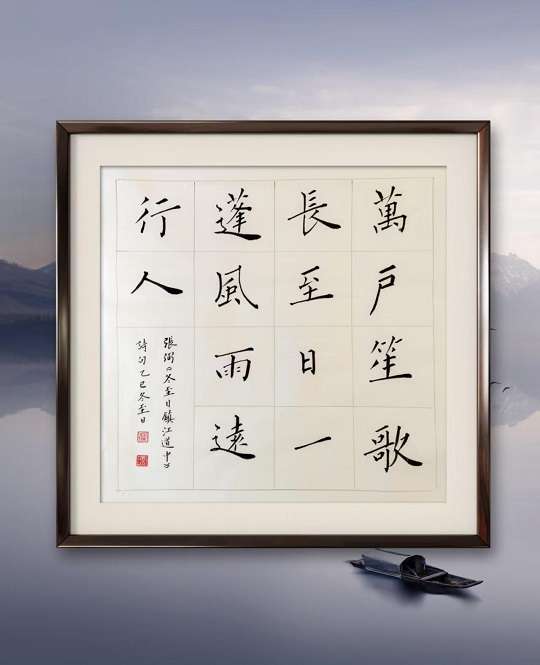 萬戶笙歌
長至日一
蓬風雨遠
行人
張弼《冬至日鎮江道中》
詩句乙巳冬至日